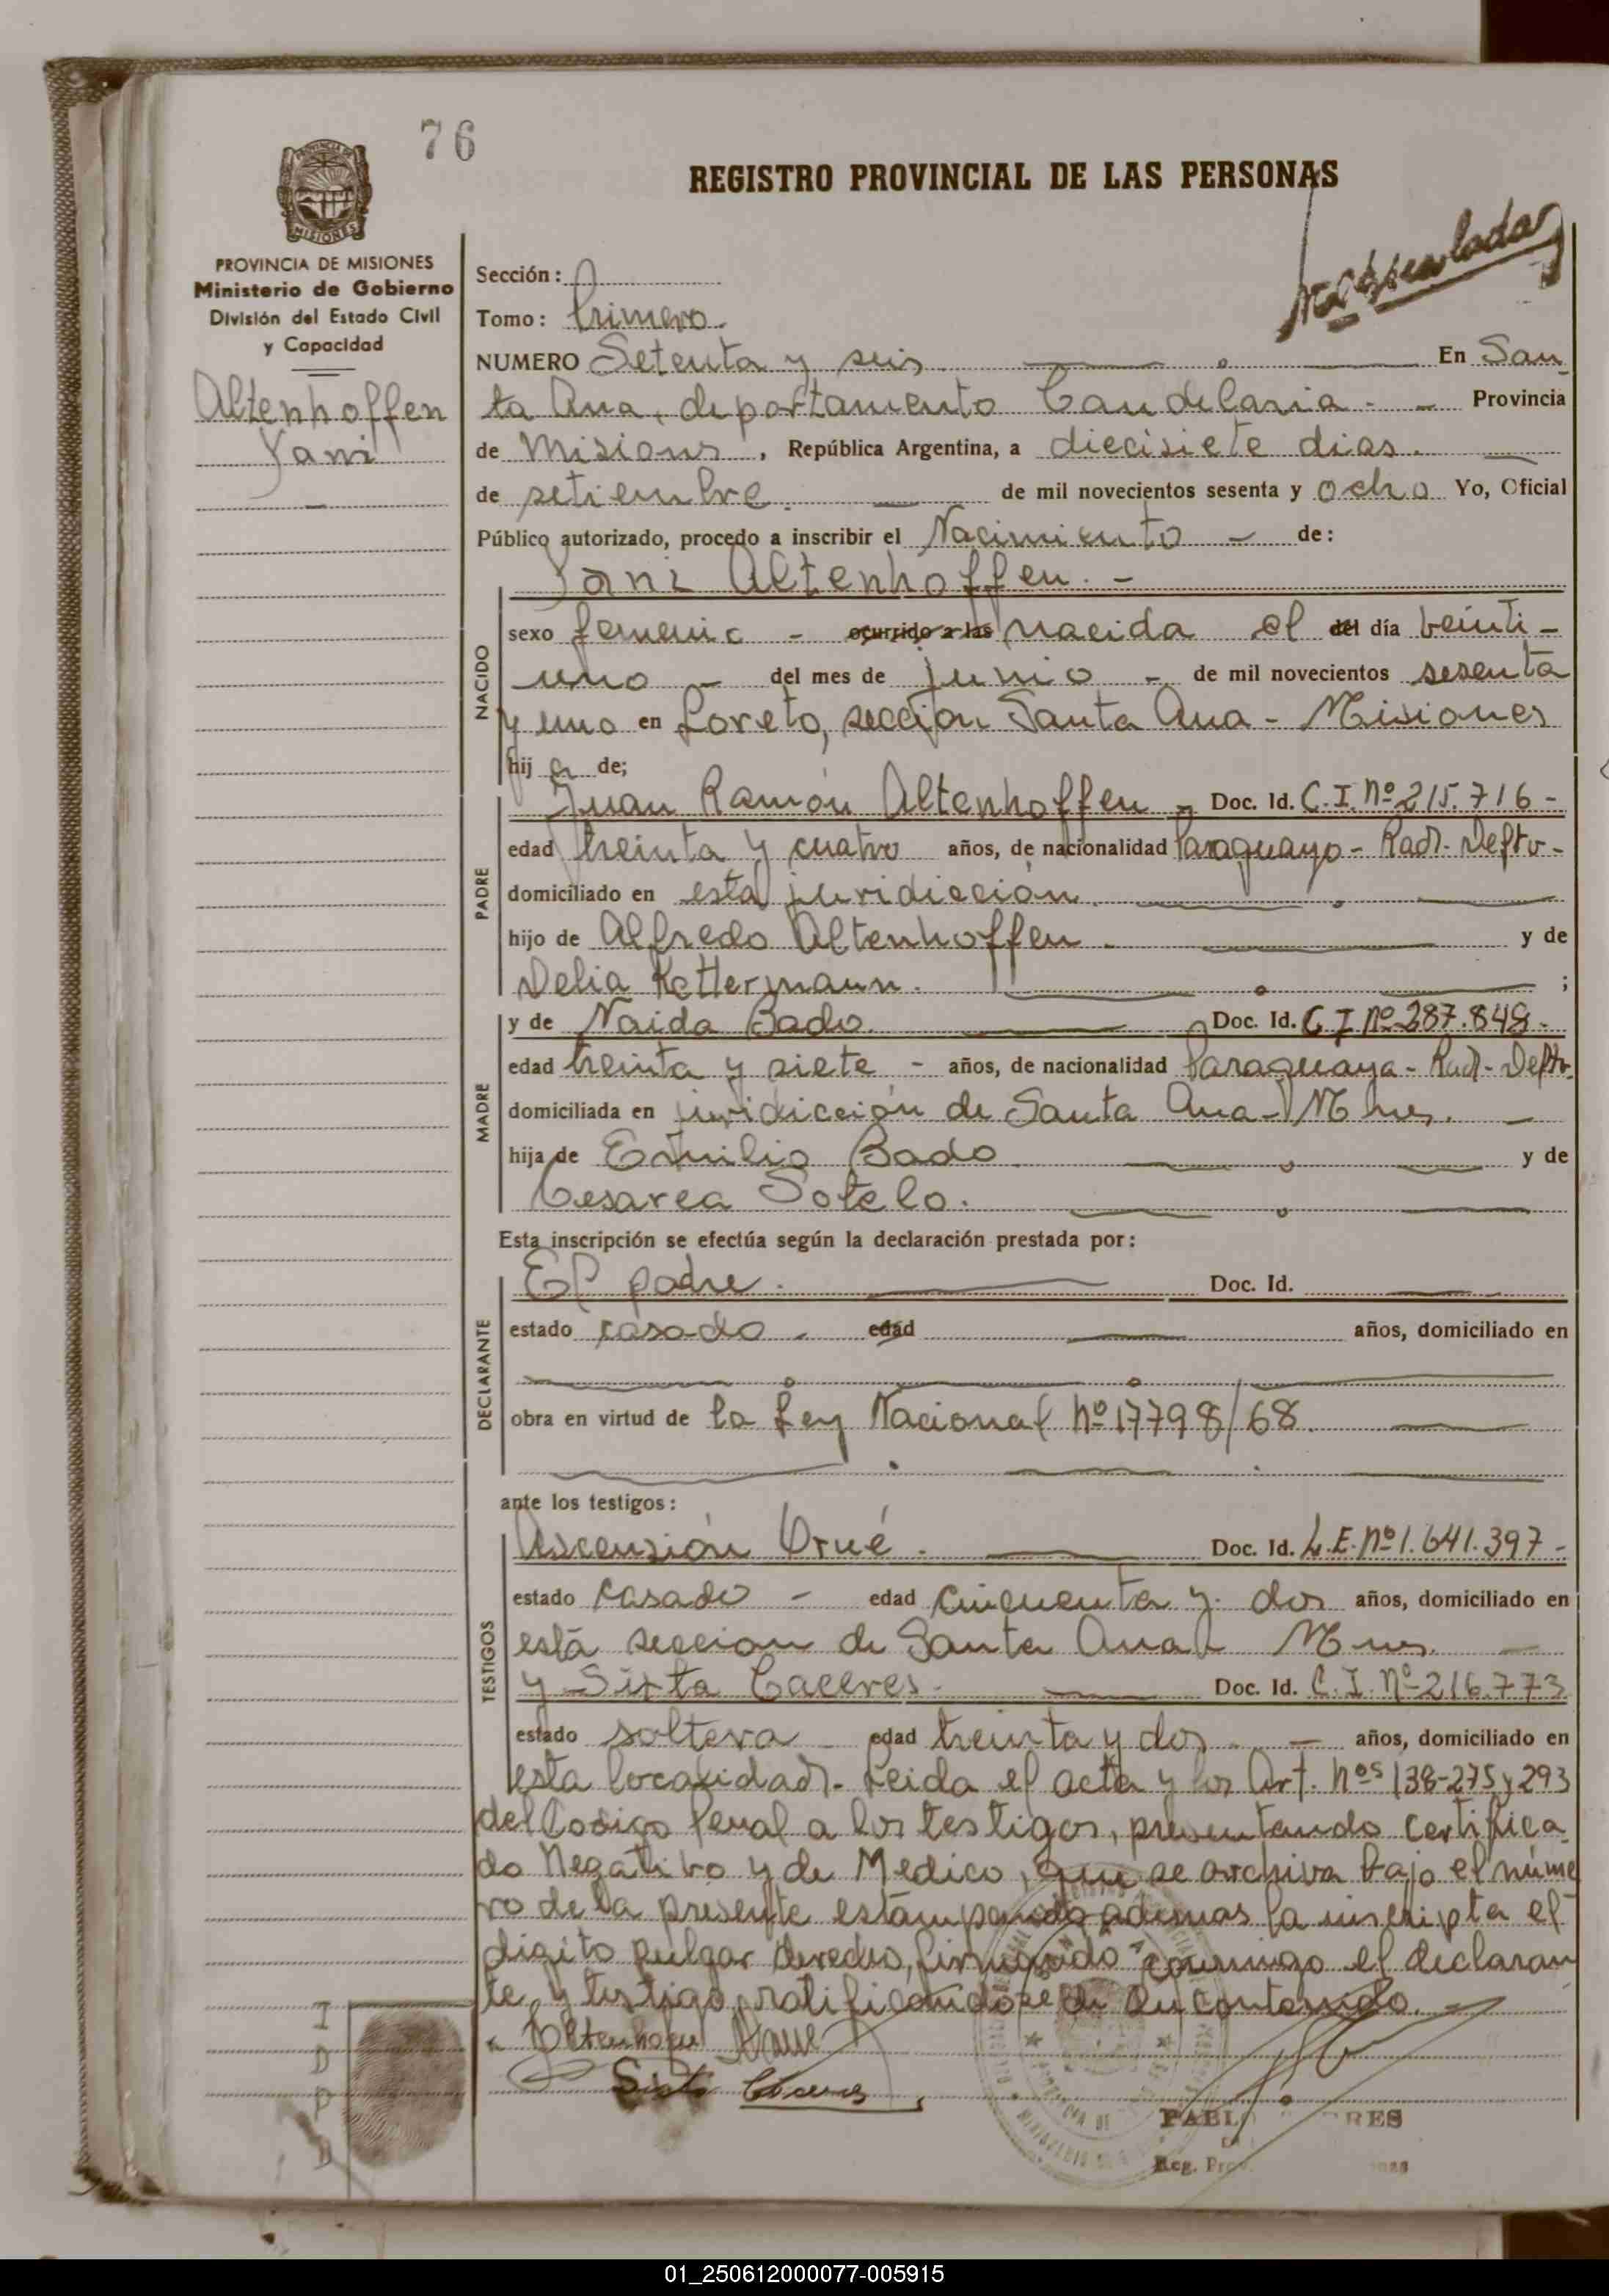 76
REGISTRO PROVINCIAL DE LAS PERSONAS
PROVINCIA DE MISIONES
Ministerio de Gobierno
División del Estado Civil
y Capacidad
Altenhoffen
Yani
Sección:
Tomo: Primero.
NUMERO Setenta y seis En San
ta Ana, departamento Candelaria - - Provincia
de Misiones, República Argentina, a diecisiete dias.
de setiembre. de mil novecientos sesenta y ocho Yo, Oficial
Público autorizado, procedo a inscribir el Nacimiento - de:
Yani Altenhoffen. -
NACIDO
sexo femenino - ocurrido a las nacida el del día veinti-
uno - del mes de junio - de mil novecientos sesenta
y uno en Loreto, seccion Santa Ana - Misiones
hij a de;
PADRE
Juan Ramón Altenhoffen - Doc. Id. C.I. Nº 215.716 -
edad treinta y cuatro años, de nacionalidad Paraguayo - Rad. Deftv -
domiciliado en esta juridicción.
hijo de Alfredo Altenhoffen. y de
Delia Kettermann. ;
MADRE
y de Naida Bado. Doc. Id. C.I Nº 287.848 -
edad treinta y siete - años, de nacionalidad Paraguaya - Rad - Deftv.
domiciliada en juridicción de Santa Ana - Mnes. -
hija de Emilio Bado y de
Cesarea Sotelo.
Esta inscripción se efectúa según la declaración prestada por:
DECLARANTE
El padre. Doc. Id.
estado casado. edad años, domiciliado en
obra en virtud de la Ley Nacional Nº 17798/68.
ante los testigos:
TESTIGOS
Ascensión Orué. Doc. Id. L.E. Nº 1.641.397 -
estado casado - edad cincuenta y dos años, domiciliado en
está seccion de Santa Ana - Mnes. -
y Sixta Caceres. Doc. Id. C.I. Nº 216.773
estado soltera - edad treinta y dos - años, domiciliado en
esta localidad. - Leida el acta y los Art. Nos 138-275 y 293
del Codigo Penal a los testigos, presentando certifica
do Negativo y de Medico, que se archiva bajo el núme
ro de la presente estampando ademas la inscripta el
digito pulgar derecho, firmando conmigo el declaran
te y testigo, ratificandose de su contenido.
Altenhofen
Sixta Caceres
I
D
P
D
PABLO RES
Reg. Prov.
01_250612000077-005915